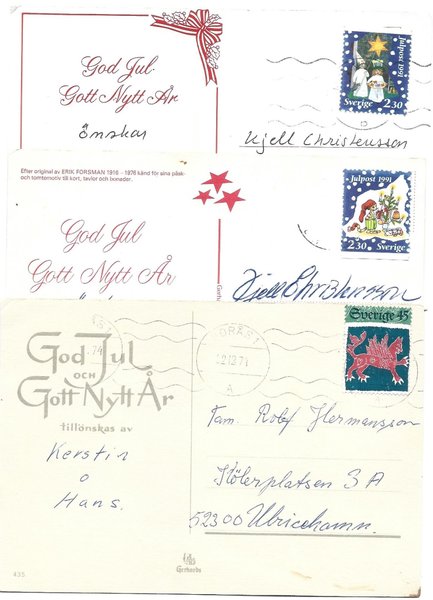 God Jul
Gott Nytt År
önskar
Julpost 1991
Sverige 2.30
Kjell Christensson
Efter original av ERIK FORSMAN 1916 – 1976 känd för sina påsk-
och tomtemotiv till kort, tavlor och bonader.
God Jul
Gott Nytt År
Julpost 1991
2.30 Sverige
Kjell Christensson
God Jul
OCH
Gott Nytt År
tillönskas av
Kerstin
o
Hans.
BORÅS 1
12 12 74
A
Sverige 45
Fam. Rolf Hermansson
Kölerplatsen 3 A
52300 Ulricehamn.
Gerhards
435